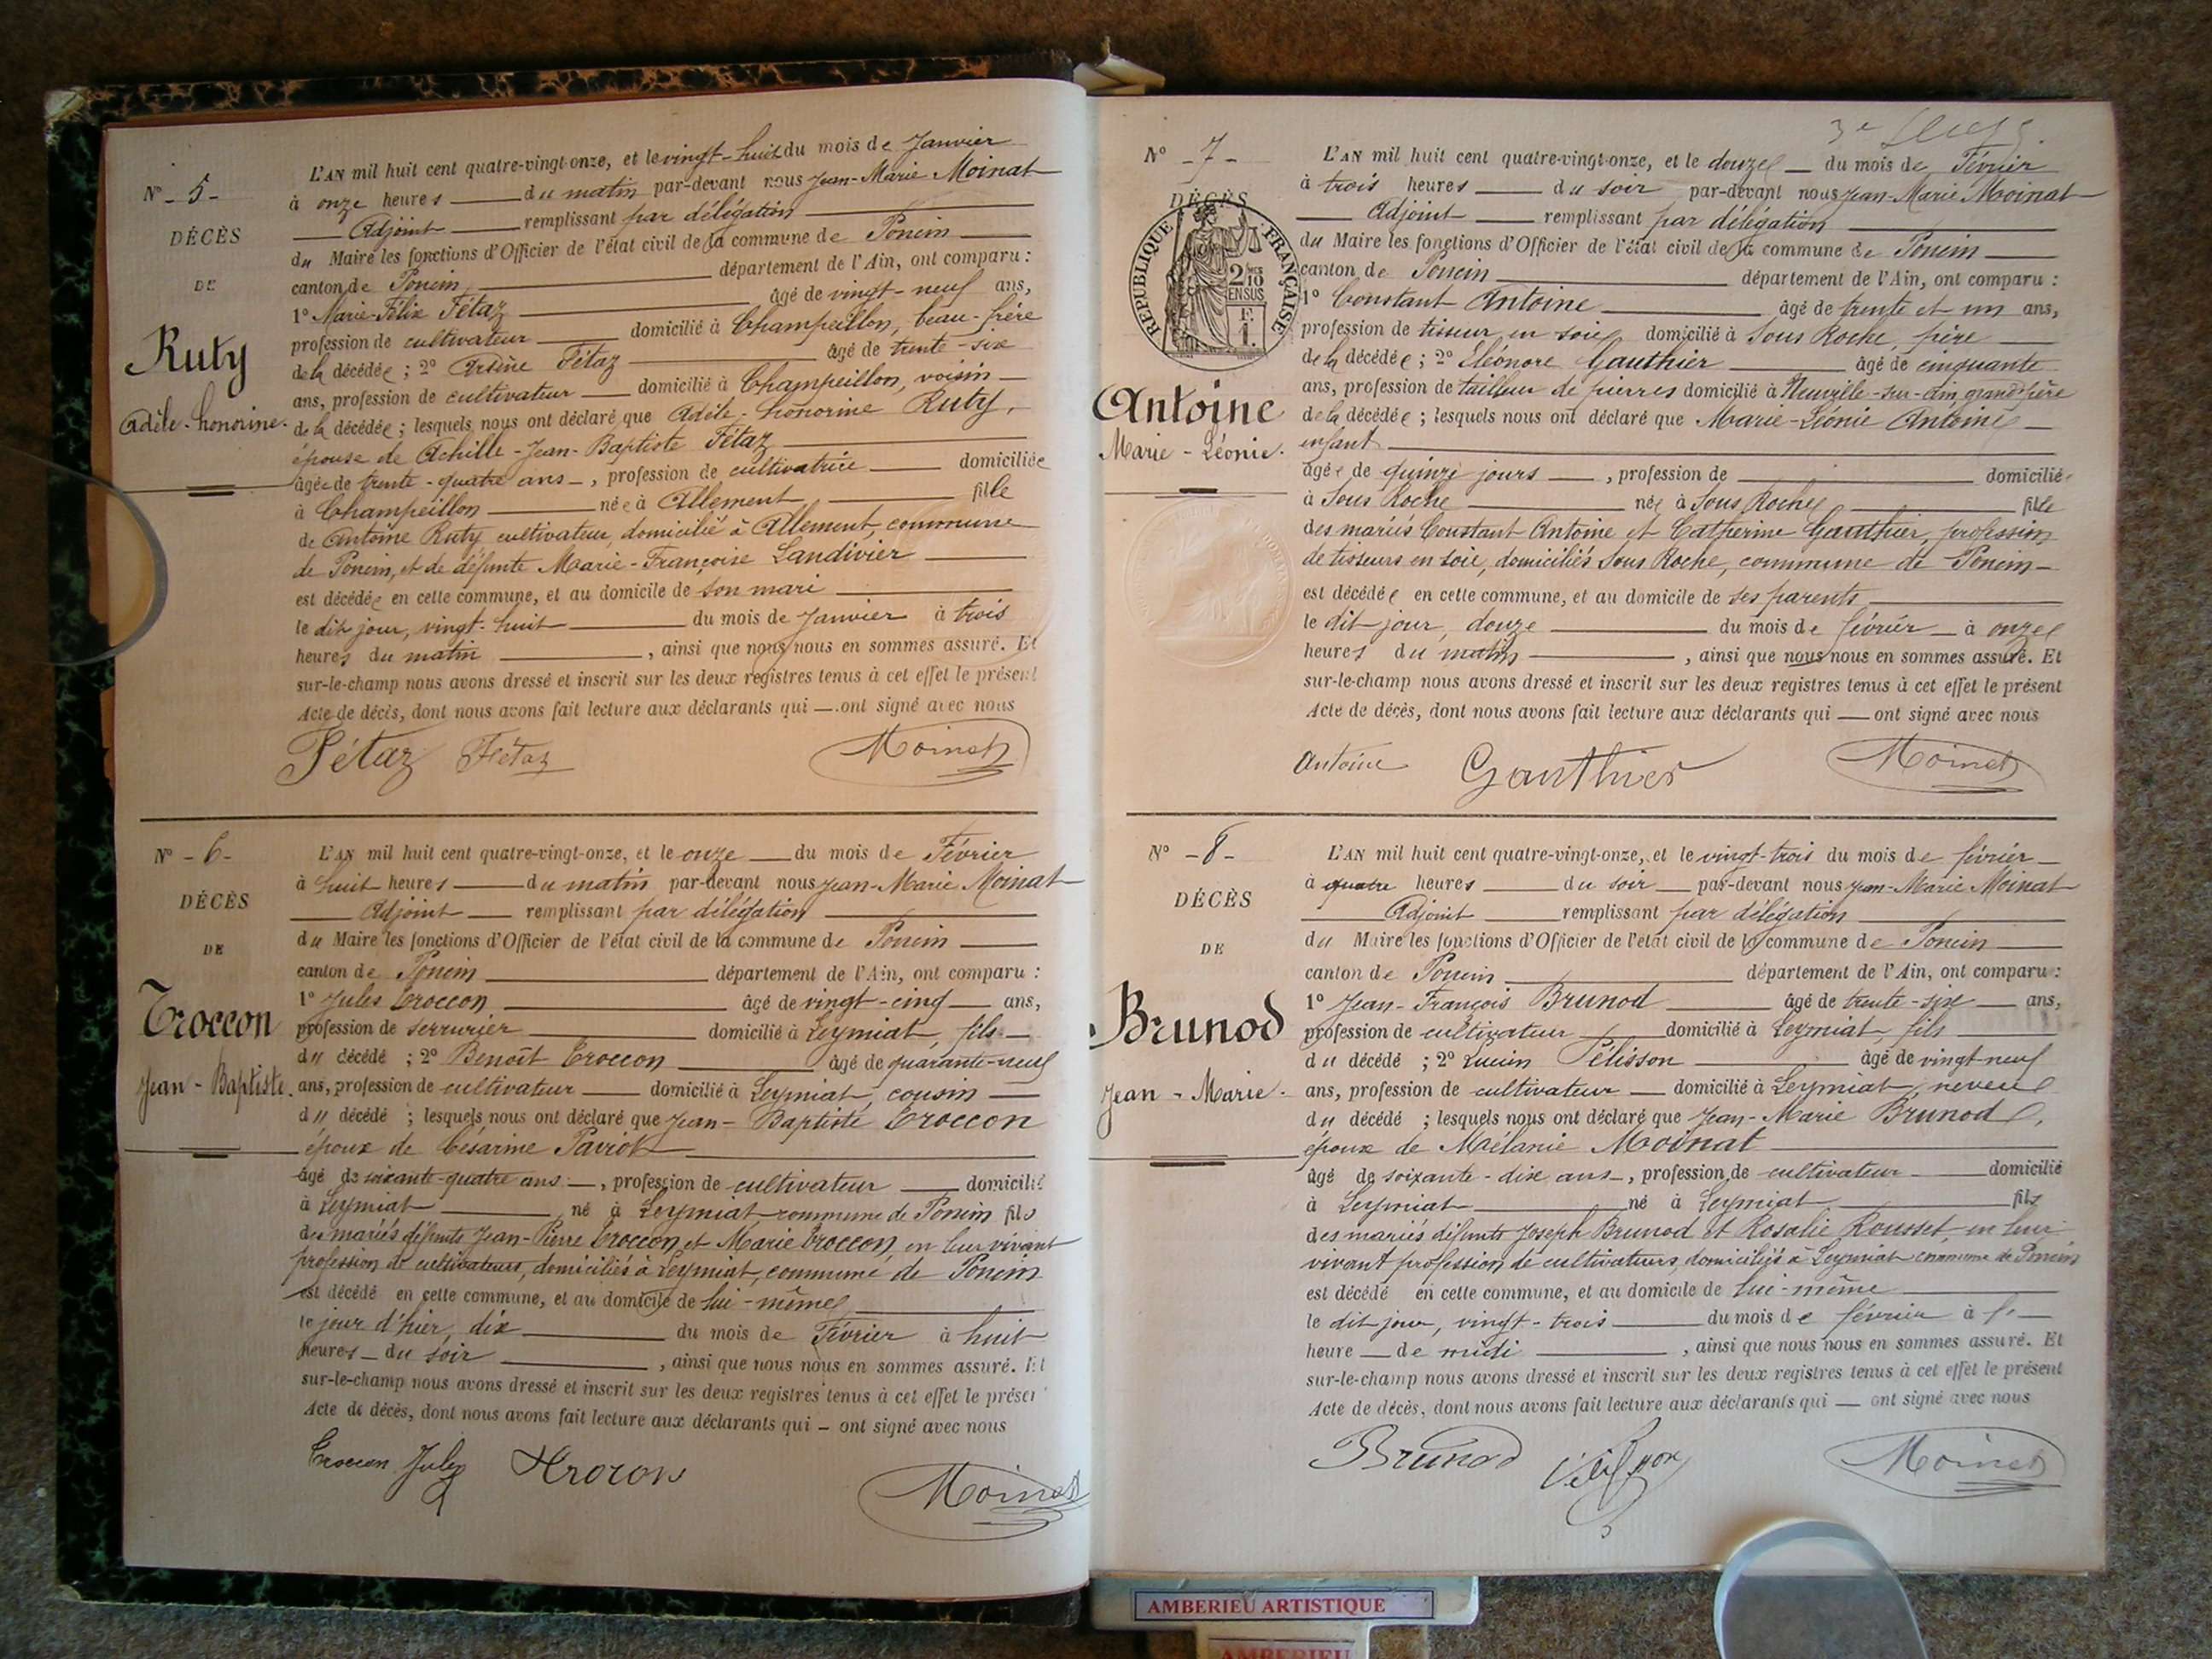 N° - 5 -
DÉCÈS
DE
Ruty
Adèle-honorine.
L'AN mil huit cent quatre-vingt-onze, et le vingt-huit du mois de Janvier
à onze heures du matin par-devant nous Jean-Marie Moinat
Adjoint remplissant par délégation
du Maire les fonctions d'Officier de l'état civil de la commune de Poncin
canton de Poncin département de l'Ain, ont comparu :
1° Marie-Félix Fétaz âgé de vingt-neuf ans,
profession de cultivateur domicilié à Champeillon, beau-frère
de la décédée ; 2° Arsène Fétaz âgé de trente-six
ans, profession de cultivateur domicilié à Champeillon, voisin
de la décédée ; lesquels nous ont déclaré que Adèle-honorine Ruty,
épouse de Achille-Jean-Baptiste Fétaz
âgée de trente-quatre ans, profession de cultivatrice domiciliée
à Champeillon née à Allement fille
de Antoine Ruty cultivateur, domicilié à Allement, commune
de Poncin, et de défunte Marie-Françoise Landivier
est décédée en cette commune, et au domicile de son mari
le dit jour, vingt-huit du mois de Janvier à trois
heures du matin, ainsi que nous nous en sommes assuré. Et
sur-le-champ nous avons dressé et inscrit sur les deux registres tenus à cet effet le présent
Acte de décès, dont nous avons fait lecture aux déclarants qui ont signé avec nous
Fétaz Fétaz Moinat
N° - 6 -
DÉCÈS
DE
Croccon
Jean-Baptiste.
L'AN mil huit cent quatre-vingt-onze, et le onze du mois de Février
à huit heures du matin par-devant nous Jean-Marie Moinat
Adjoint remplissant par délégation
du Maire les fonctions d'Officier de l'état civil de la commune de Poncin
canton de Poncin département de l'Ain, ont comparu :
1° Jules Croccon âgé de vingt-cinq ans,
profession de serrurier domicilié à Leymiat, fils
du décédé ; 2° Benoît Croccon âgé de quarante-neuf
ans, profession de cultivateur domicilié à Leymiat, cousin
du décédé ; lesquels nous ont déclaré que Jean-Baptiste Croccon
époux de Césarine Paviot
âgé de soixante-quatre ans, profession de cultivateur domicilié
à Leymiat né à Leymiat commune de Poncin fils
des mariés défunts Jean-Pierre Croccon et Marie Croccon, en leur vivant
profession de cultivateurs, domiciliés à Leymiat, commune de Poncin
est décédé en cette commune, et au domicile de lui-même
le jour d'hier, dix du mois de Février à huit
heures du soir, ainsi que nous nous en sommes assuré. Et
sur-le-champ nous avons dressé et inscrit sur les deux registres tenus à cet effet le présent
Acte de décès, dont nous avons fait lecture aux déclarants qui ont signé avec nous
Croccon Jules Moinat
N° - 7 -
DÉCÈS
RÉPUBLIQUE FRANÇAISE
2/10 EN SUS
F. 1.
Antoine
Marie-Léonie.
L'AN mil huit cent quatre-vingt-onze, et le douze du mois de Février
à trois heures du soir par-devant nous Jean-Marie Moinat
Adjoint remplissant par délégation
du Maire les fonctions d'Officier de l'état civil de la commune de Poncin
canton de Poncin département de l'Ain, ont comparu :
1° Constant Antoine âgé de trente et un ans,
profession de tisseur en soie domicilié à Sous Roche, père
de la décédée ; 2° Eléonore Gauthier âgé de cinquante
ans, profession de tailleur de pierres domicilié à Neuville-sur-Ain, grand-père
de la décédée ; lesquels nous ont déclaré que Marie-Léonie Antoine
enfant
âgée de quinze jours, profession de domicilié
à Sous Roche née à Sous Roche fille
des mariés Constant Antoine et Catherine Gauthier, profession
de tisseurs en soie, domiciliés Sous Roche, commune de Poncin
est décédée en cette commune, et au domicile de ses parents
le dit jour, douze du mois de février à onze
heures du matin, ainsi que nous nous en sommes assuré. Et
sur-le-champ nous avons dressé et inscrit sur les deux registres tenus à cet effet le présent
Acte de décès, dont nous avons fait lecture aux déclarants qui ont signé avec nous
Antoine Gauthier Moinat
N° - 8 -
DÉCÈS
DE
Brunod
Jean-Marie.
L'AN mil huit cent quatre-vingt-onze, et le vingt-trois du mois de février
à quatre heures du soir par-devant nous Jean-Marie Moinat
Adjoint remplissant par délégation
du Maire les fonctions d'Officier de l'état civil de la commune de Poncin
canton de Poncin département de l'Ain, ont comparu :
1° Jean-François Brunod âgé de trente-six ans,
profession de cultivateur domicilié à Leymiat, fils
du décédé ; 2° Lucien Pélisson âgé de vingt-neuf
ans, profession de cultivateur domicilié à Leymiat, neveu
du décédé ; lesquels nous ont déclaré que Jean-Marie Brunod,
époux de Mélanie Moinat
âgé de soixante-dix ans, profession de cultivateur domicilié
à Leymiat né à Leymiat fils
des mariés défunts Joseph Brunod et Rosalie Rousset, en leur
vivant profession de cultivateurs, domiciliés à Leymiat commune de Poncin
est décédé en cette commune, et au domicile de lui-même
le dit jour, vingt-trois du mois de février à
heure de midi, ainsi que nous nous en sommes assuré. Et
sur-le-champ nous avons dressé et inscrit sur les deux registres tenus à cet effet le présent
Acte de décès, dont nous avons fait lecture aux déclarants qui ont signé avec nous
Brunod Pélisson Moinat
AMBERIEU ARTISTIQUE
AMBERIEU